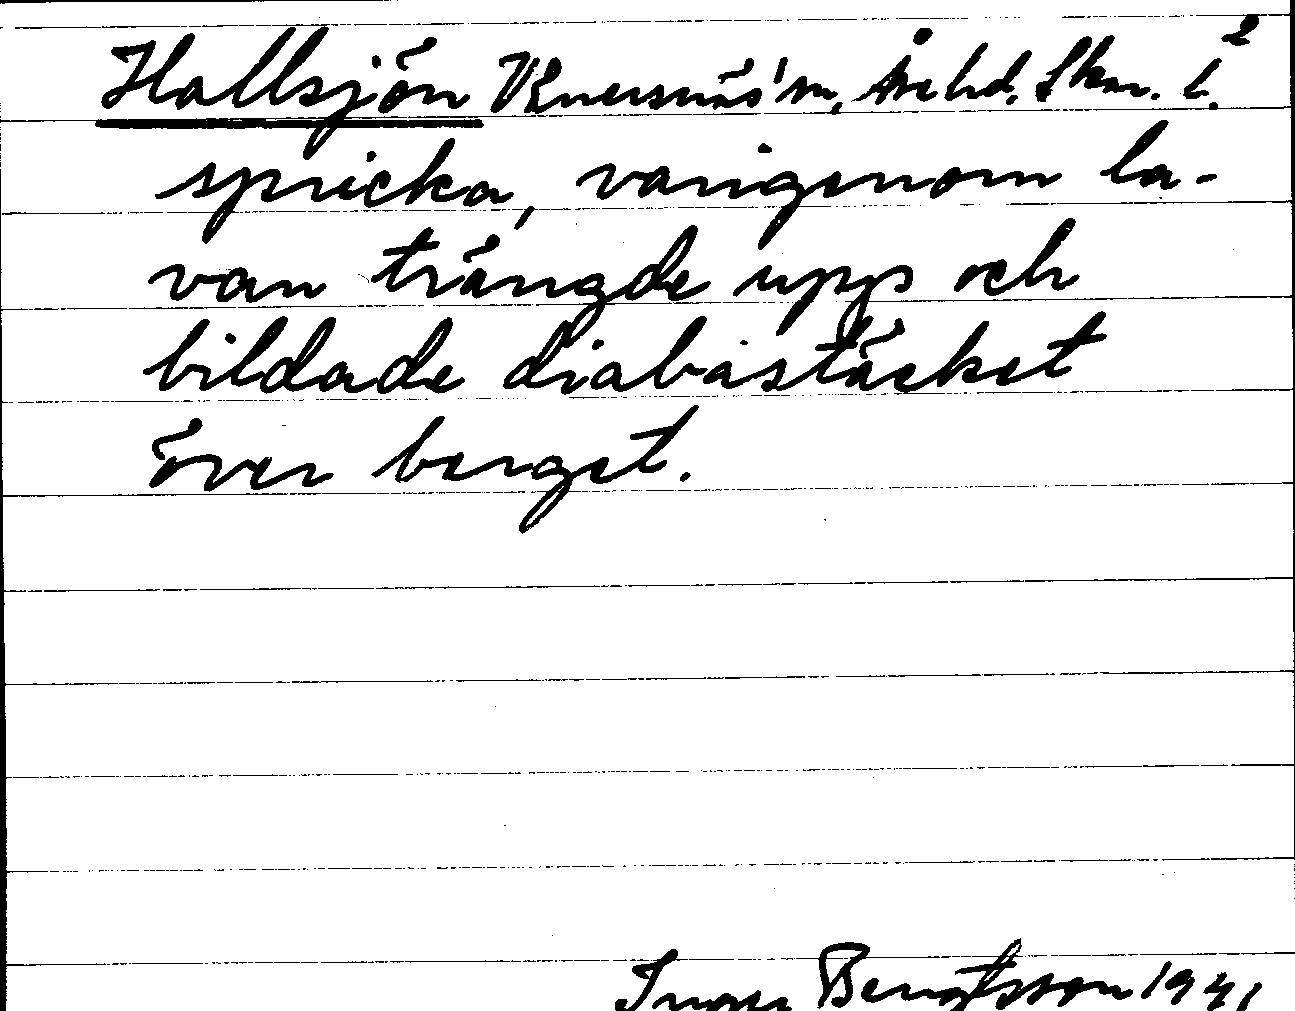 Hallsjön Knersnäs' m, Åse hd. Skar. l. 2
spricka, varigenom la-
van trängde upp och
bildade diabastäcket
över berget.
Bengtsson 1941